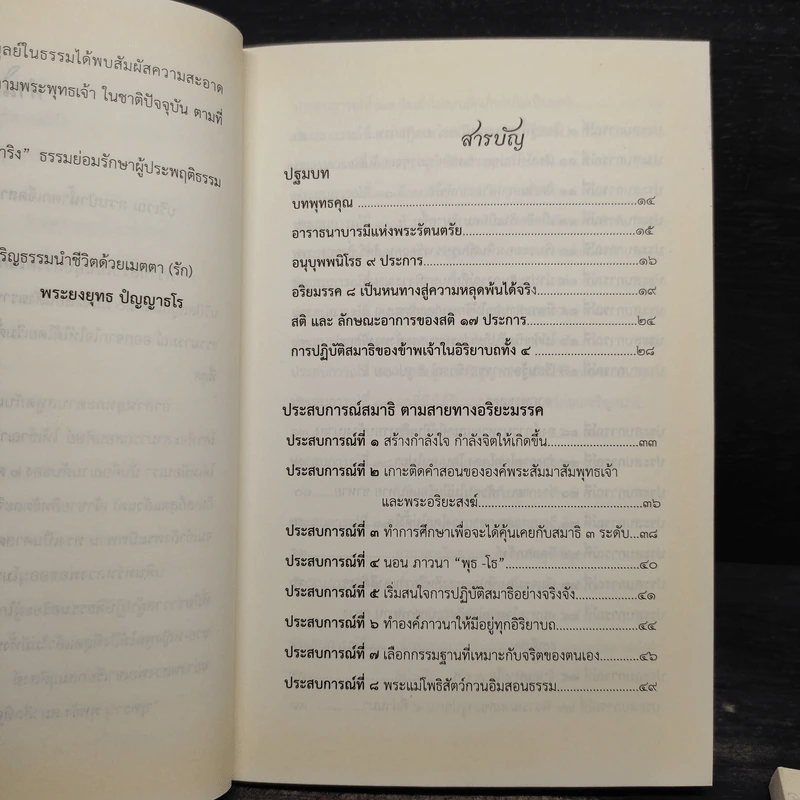 ูลย์ในธรรมได้พบสัมผัสความสะอาด
ามพระพุทธเจ้า ในชาติปัจจุบัน ตามที่
าริง” ธรรมย่อมรักษาผู้ประพฤติธรรม
ริญธรรมนำชีวิตด้วยเมตตา (รัก)
พระยงยุทธ ปัญญาธโร
สารบัญ
ปฐมบท
บทพุทธคุณ ....................................................................๑๔
อาราธนาบารมีแห่งพระรัตนตรัย..........................................๑๕
อนุบุพพนิโรธ ๙ ประการ....................................................๑๖
อริยมรรค ๘ เป็นหนทางสู่ความหลุดพ้นได้จริง.......................๑๙
สติ และ ลักษณะอาการของสติ ๑๗ ประการ.........................๒๔
การปฏิบัติสมาธิของข้าพเจ้าในอิริยาบถทั้ง ๔ .......................๒๘
ประสบการณ์สมาธิ ตามสายทางอริยะมรรค
ประสบการณ์ที่ ๑ สร้างกำลังใจ กำลังจิตให้เกิดขึ้น.....................๓๓
ประสบการณ์ที่ ๒ เกาะติดคำสอนขององค์พระสัมมาสัมพุทธเจ้า
และพระอริยะสงฆ์.......................................๓๖
ประสบการณ์ที่ ๓ ทำการศึกษาเพื่อจะได้คุ้นเคยกับสมาธิ ๓ ระดับ...๓๘
ประสบการณ์ที่ ๔ นอน ภาวนา “พุธ -โธ”................................๔๐
ประสบการณ์ที่ ๕ เริ่มสนใจการปฏิบัติสมาธิอย่างจริงจัง...............๔๑
ประสบการณ์ที่ ๖ ทำองค์ภาวนาให้มีอยู่ทุกอิริยาบถ....................๔๔
ประสบการณ์ที่ ๗ เลือกกรรมฐานที่เหมาะกับจริตของตนเอง.........๔๖
ประสบการณ์ที่ ๘ พระแม่โพธิสัตว์กวนอิมสอนธรรม...................๔๙